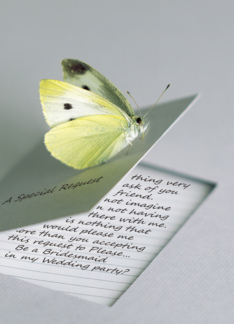 A Special Request
thing very
ask of you
friend.
not imagine
n not having
there with me.
is nothing that
would please me
ore than you accepting
this request to Please...
Be a Bridesmaid
in my Wedding party?